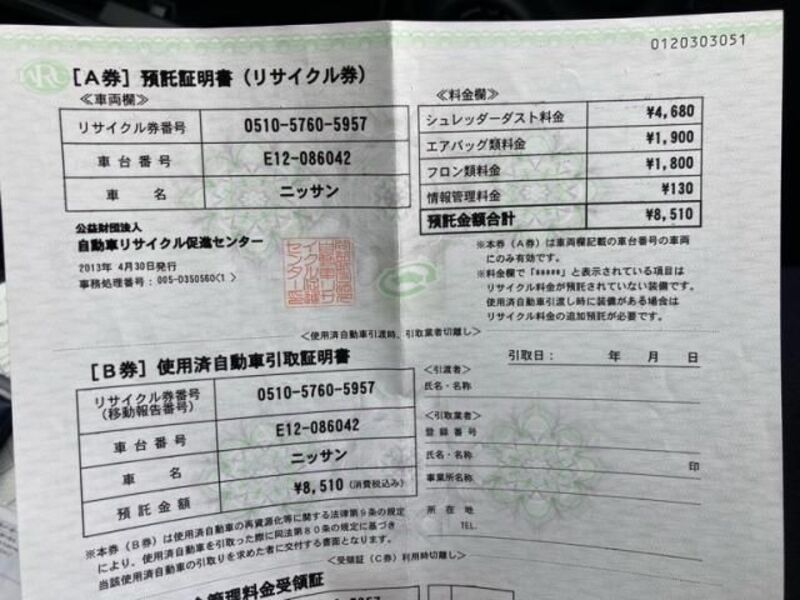 0120303051
ARC
[A券] 預託証明書 (リサイクル券)
≪車両欄≫
リサイクル券番号 0510-5760-5957
車台番号 E12-086042
車名 ニッサン
≪料金欄≫
シュレッダーダスト料金 ¥4,680
エアバッグ類料金 ¥1,900
フロン類料金 ¥1,800
情報管理料金 ¥130
預託金額合計 ¥8,510
公益財団法人
自動車リサイクル促進センター
2013年 4月30日発行
事務処理番号:005-0350560<1>
※本券(A券)は車両欄記載の車台番号の車両
にのみ有効です。
※料金欄で「*****」と表示されている項目は
リサイクル料金が預託されていない装備です。
使用済自動車引渡し時に装備がある場合は
リサイクル料金の追加預託が必要です。
<使用済自動車引渡時、引取業者切離し>
[B券] 使用済自動車引取証明書
リサイクル券番号
(移動報告番号) 0510-5760-5957
車台番号 E12-086042
車名 ニッサン
預託金額 ¥8,510 (消費税込み)
引取日: 年 月 日
<引渡者>
氏名・名称
<引取業者>
登録番号
氏名・名称
印
事業所名称
所在地
TEL.
※本券(B券)は使用済自動車の再資源化等に関する法律第9条の規定
により、使用済自動車を引取った際に同法第80条の規定に基づき
当該使用済自動車の引取りを求めた者に交付する書面となります。
<受領証(C券)利用時切離し>
管理料金受領証